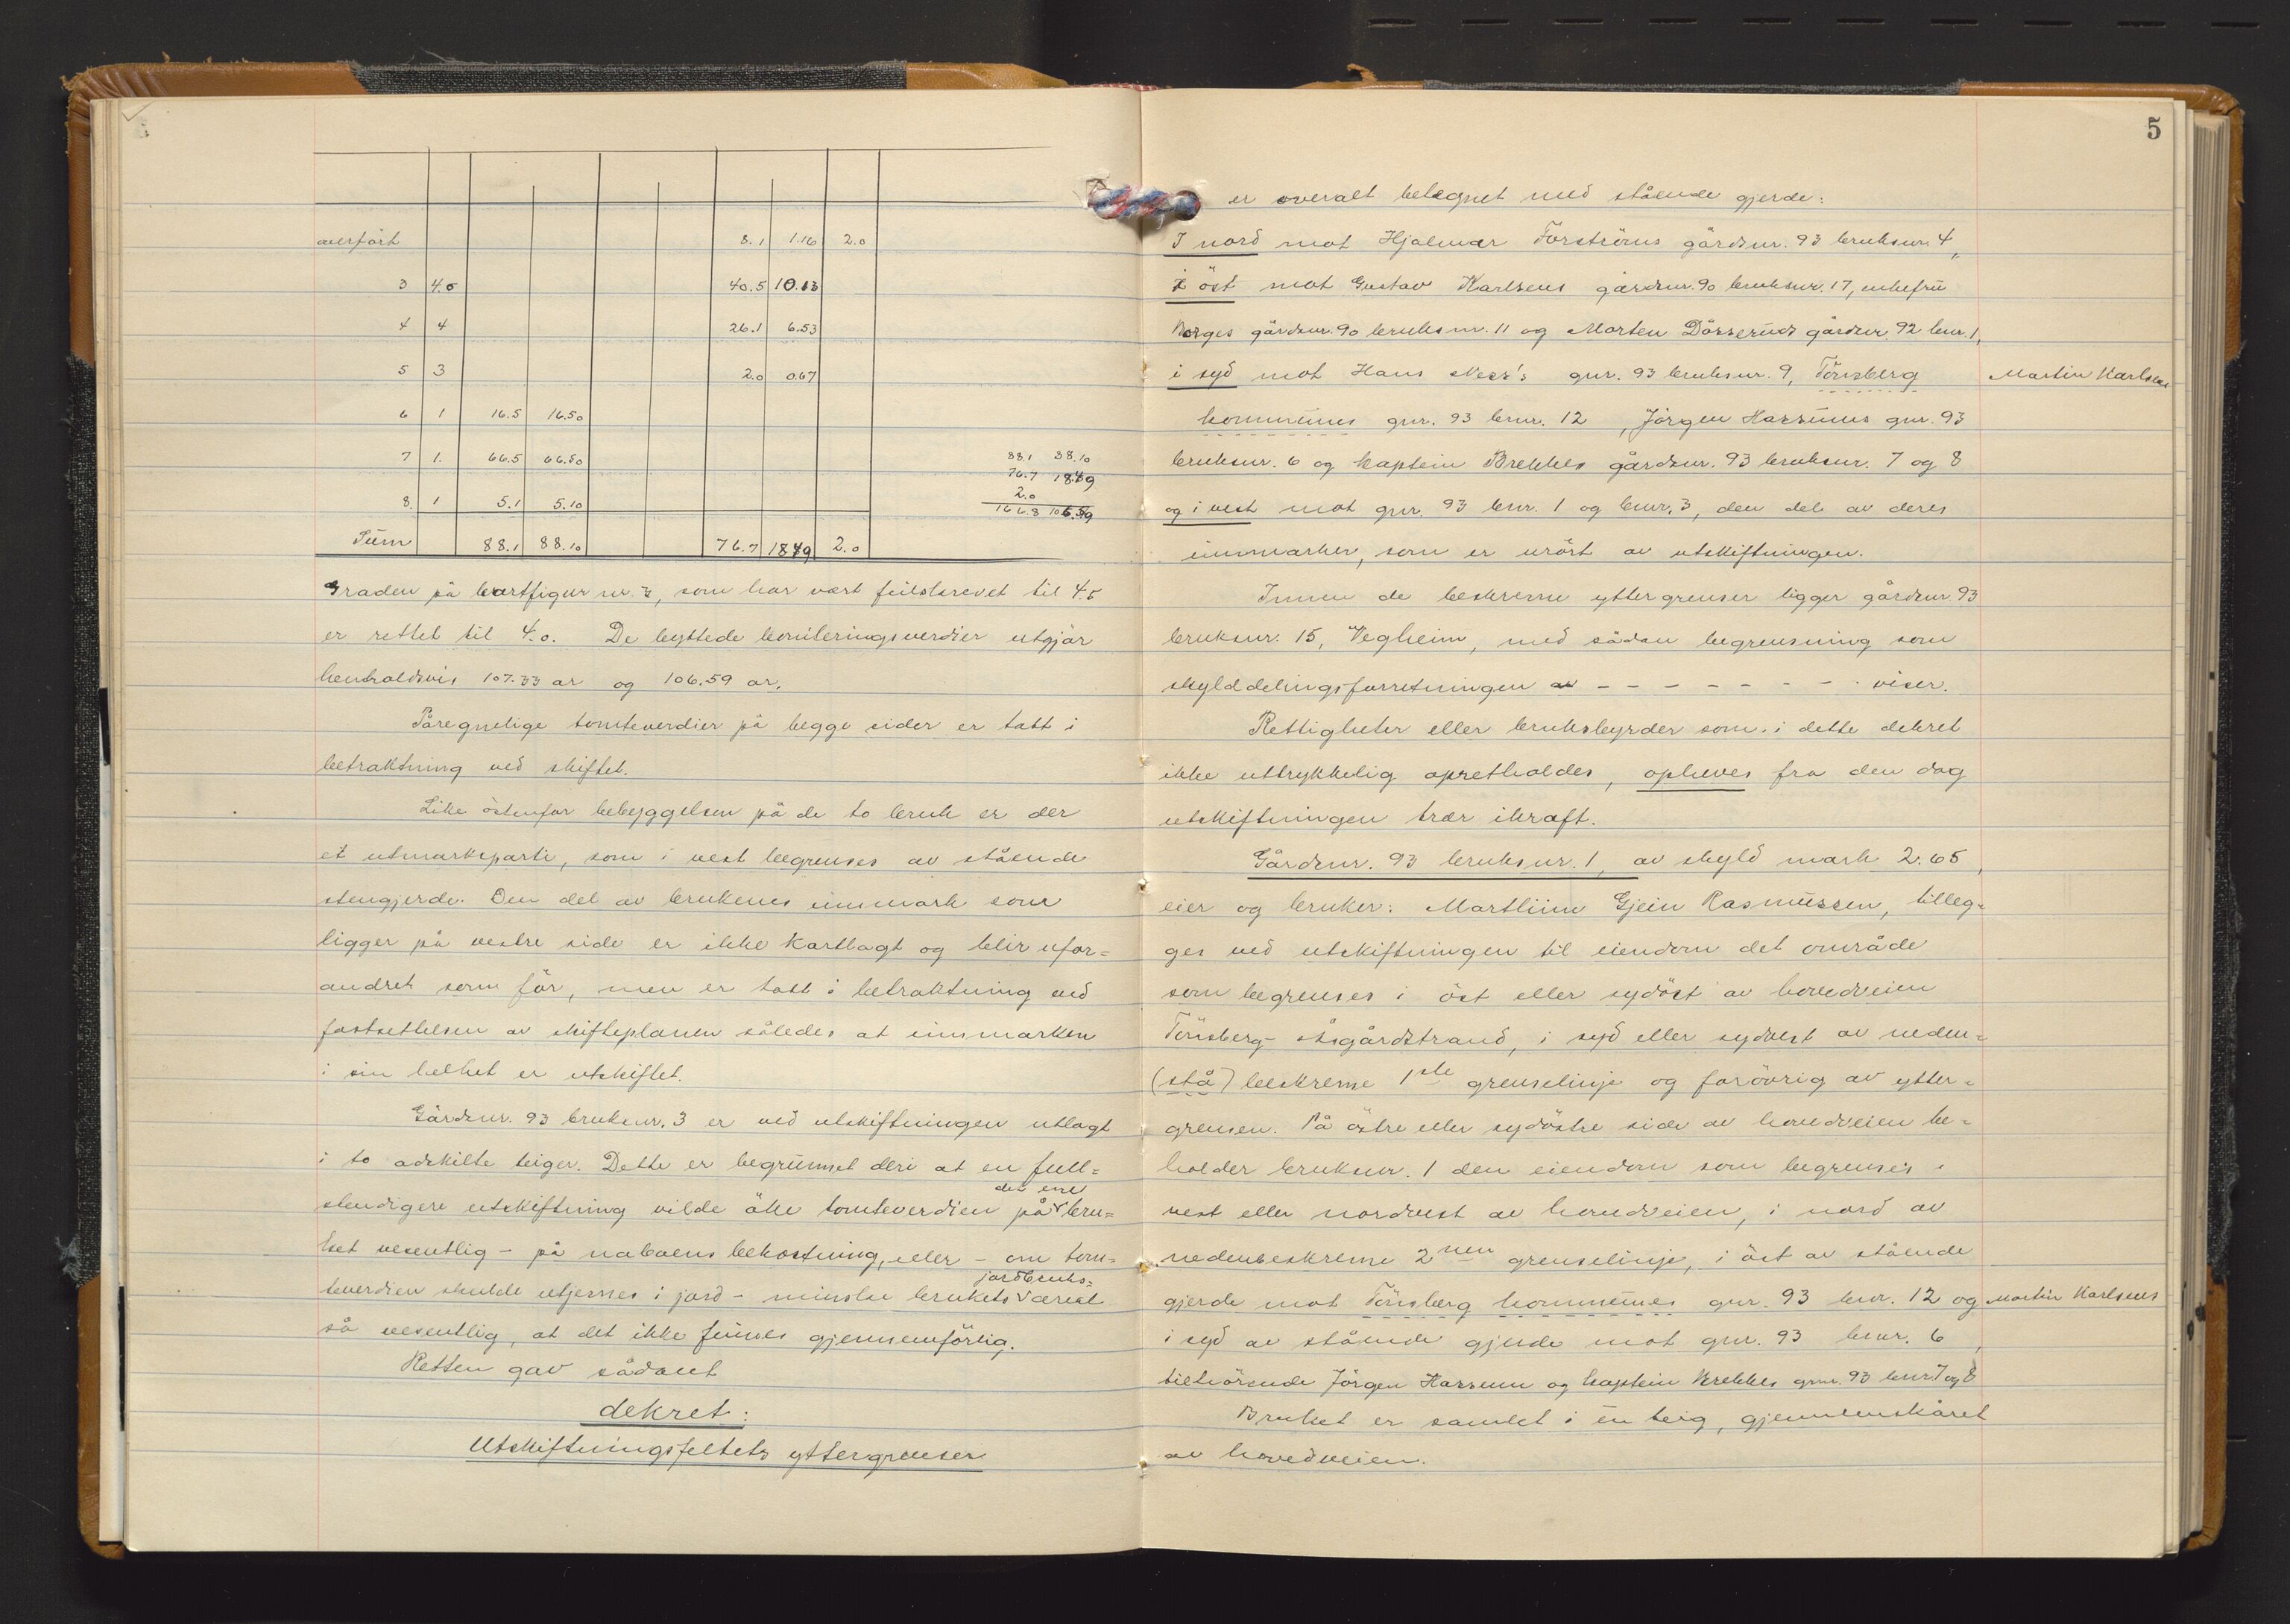 overført 8.1 1.16 2.0
3 4.0 40.5 10.13
4 4 26.1 6.53
5 3 2.0 0.67
6 1 16.5 16.50
7 1. 66.5 66.50
8. 1 5.1 5.10
Sum 88.1 88.10 76.7 18.49 2.0
88.1 88.10
76.7 18.49
2.0
166.8 106.59
Graden på kartfigur nr. 3, som har vært feilskrevet til 4.5
er rettet til 4.0. De byttede boniteringsverdier utgjør
henholdsvis 107.33 ar og 106.59 ar.
Påregnelige tomteverdier på begge sider er tatt i
betraktning ved skiftet.
Like østenfor bebyggelsen på de to bruk er der
et utmarksparti, som i vest begrenses av stående
stengjerde. Den del av brukenes innmark som
ligger på vestre side er ikke kartlagt og blir ufor=
andret som før, men er tatt i betraktning ved
fastsettelsen av skifteplanen således at innmarken
i sin helhet er utskiftet.
Gårdsnr. 93 bruksnr. 3 er ved utskiftningen utlagt
i to adskilte teiger. Dette er begrunnet deri at en full=
stendigere utskiftning vilde øke tomteverdien på det ene bru=
ket vesentlig - på naboens bekostning, eller - om tom=
teverdien skulde utjevnes i jord - minske brukets jordbruks= areal
så vesentlig, at det ikke finnes gjennemførlig.
Retten gav sådant
dekret:
Utskiftningsfeltets yttergrenser
5
er overalt betegnet med stående gjerde:
I nord mot Hjalmar Forstrøms gårdsnr. 93 bruksnr. 4,
i øst mot Gustav Karlsens gårdsnr. 90 bruksnr. 17, enkefru
Borges gårdsnr. 90 bruksnr. 11 og Morten Dørseruds gårdsnr. 92 bnr. 1,
i syd mot Hans Ness's gnr. 93 bruksnr. 9, Tønsberg
Martin Karlsens
kommunes gnr. 93 bnr. 12, Jørgen Hassums gnr. 93
bruksnr. 6 og kaptein Brekkes gårdsnr. 93 bruksnr. 7 og 8
og i vest mot gnr. 93 bnr. 1 og bnr. 3, den del av deres
innmarker, som er urørt av utskiftningen.
Innen de beskrevne yttergrenser ligger gårdsnr. 93
bruksnr. 15, Vegheim, med sådan begrensning som
skylddelingsforretningen av - - - - - - - - viser.
Rettigheter eller bruksbyrder som i dette dekret
ikke uttrykkelig opretholdes, opheves fra den dag
utskiftningen trær ikraft.
Gårdsnr. 93 bruksnr. 1, av skyld mark 2.65,
eier og bruker: Martliinu Gjein Rasmussen, tilleg=
ges ved utskiftningen til eiendom det område
som begrenses i øst eller sydøst av hovedveien
Tønsberg - Åsgårdstrand, i syd eller sydvest av neden=
(stå) beskrevne 1ste grenselinje og forøvrig av ytter=
grensen. På østre eller sydøstre side av hovedveien be=
holder bruksnr. 1 den eiendom som begrenses i
vest eller nordvest av hovedveien, i nord av
nedenbeskrevne 2nen grenselinje, i øst av stående
gjerde mot Tønsberg kommunes gnr. 93 bnr. 12 og
Martin Karlsens
i syd av stående gjerde mot gnr. 93 bnr. 6,
tilhørende Jørgen Hassum og kaptein Brekkes gnr. 93 bnr. 7 og 8
Bruket er samlet i én teig, gjennemskåret
av hovedveien.